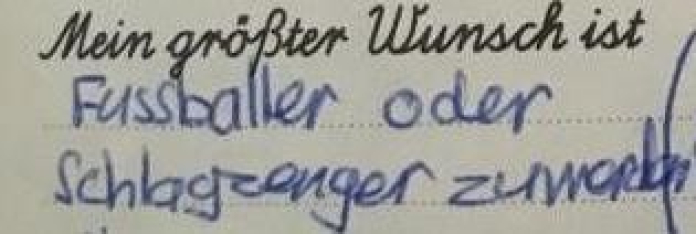 Mein größter Wunsch ist
Fussballer oder
Schlagzenger zuwerden